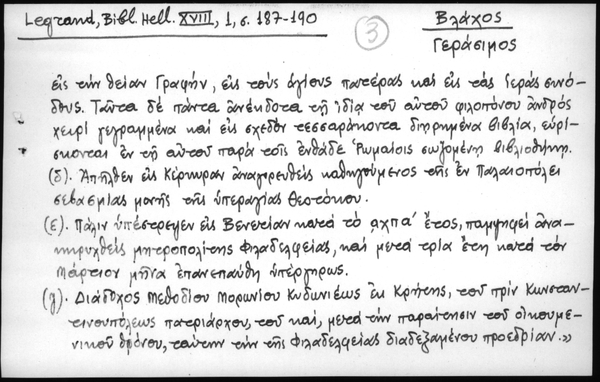 Legrand, Bibl. Hell. XVIII, 1, σ. 187-190
3
Βλάχος
Γεράσιμος
εἰς τὴν θείαν Γραφήν, εἰς τοὺς ἁγίους πατέρας καὶ εἰς τὰς ἱερὰς συνό-
δους. Ταῦτα δὲ πάντα ἀνέκδοτα τῇ ἰδίᾳ τοῦ αὐτοῦ φιλοπόνου ἀνδρὸς
χειρὶ γεγραμμένα καὶ εἰς σχεδὸν τεσσαράκοντα διῃρημένα βιβλία, εὑρί-
σκονται ἐν τῇ αὐτοῦ παρὰ τοῖς ἐνθάδε Ῥωμαίοις σωζομένῃ βιβλιοθήκῃ.
(δ). Ἀπῆλθεν εἰς Κέρκυραν ἀναγορευθεὶς καθηγούμενος τῆς ἐν Παλαιοπόλει
σεβασμίας μονῆς τῆς ὑπεραγίας Θεοτόκου.
(ε). Πάλιν ὑπέστρεψεν εἰς Βενετίαν κατὰ τὸ ͵αχπα΄ ἔτος, παμψηφεὶ ἀνα-
κηρυχθεὶς μητροπολίτης Φιλαδελφείας, καὶ μετὰ τρία ἔτη κατὰ τὸν
Μάρτιον μῆνα ἐπανεπαύθη ὑπέργηρως.
(ϛ). Διάδοχος Μεθοδίου Μορωνίου Κυδωνιέως ἐκ Κρήτης, τοῦ πρὶν Κωνσταν-
τινουπόλεως πατριάρχου, τοῦ καί, μετὰ τὴν παραίτησιν τοῦ οἰκουμε-
νικοῦ θρόνου, ταύτην τὴν τῆς Φιλαδελφείας διαδεξαμένου προεδρίαν.»